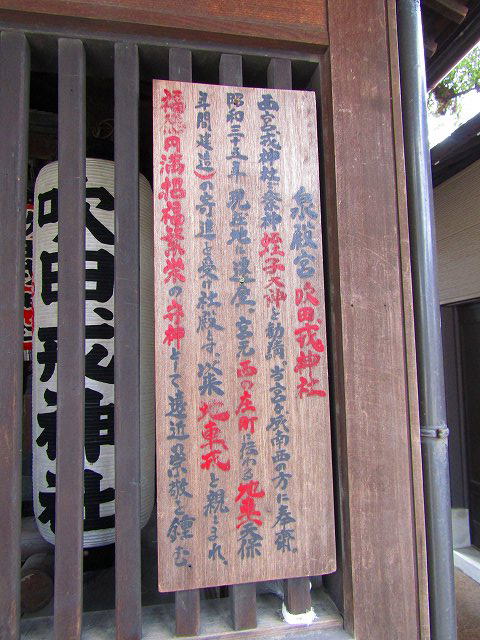 泉殿宮吹田戎神社
西宮戎神社祭神蛭子大神を勧請、当宮城南西の方に奉斎。
昭和三十五年現在地に遷座、宮元西の庄町に伝わる地車(天保
年間建造)の寄進を受け社殿とす、以来地車戎と親しまれ、
福徳円満招福繁栄の守神として遠近の崇敬を鍾む。
吹田戎神社